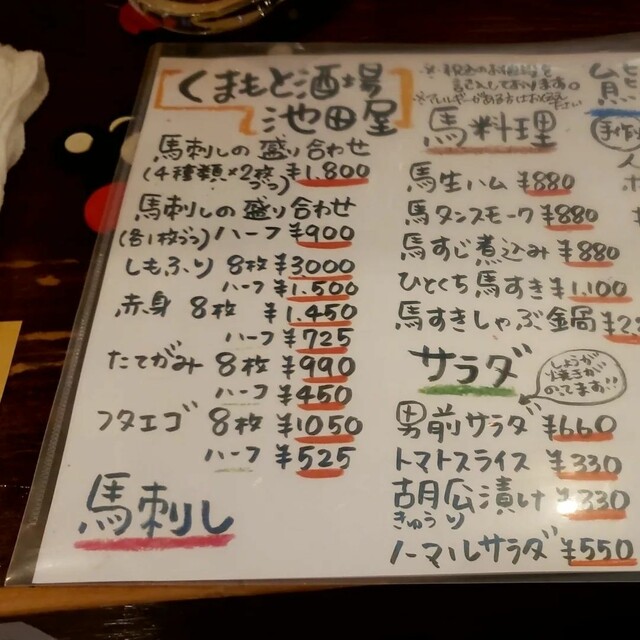 くまもと酒場
池田屋
馬刺しの盛り合わせ
(4種類×2枚づつ) ¥1,800
馬刺しの盛り合わせ
(各1枚づつ) ハーフ ¥900
しもふり 8枚 ¥3000
ハーフ ¥1.500
赤身 8枚 ¥1.450
ハーフ ¥725
たてがみ 8枚 ¥990
ハーフ ¥450
フタエゴ 8枚 ¥1050
ハーフ ¥525
馬刺し
記入しております。
馬料理
馬生ハム ¥880
馬タンスモーク ¥880
馬すじ煮込み ¥880
ひとくち馬すき ¥1.100
馬すきしゃぶ鍋
サラダ
しょうが
焼きが
のてます!!
男前サラダ ¥660
トマトスライス ¥330
胡瓜漬け ¥330
きゅうり
ノーマルサラダ ¥550
熊